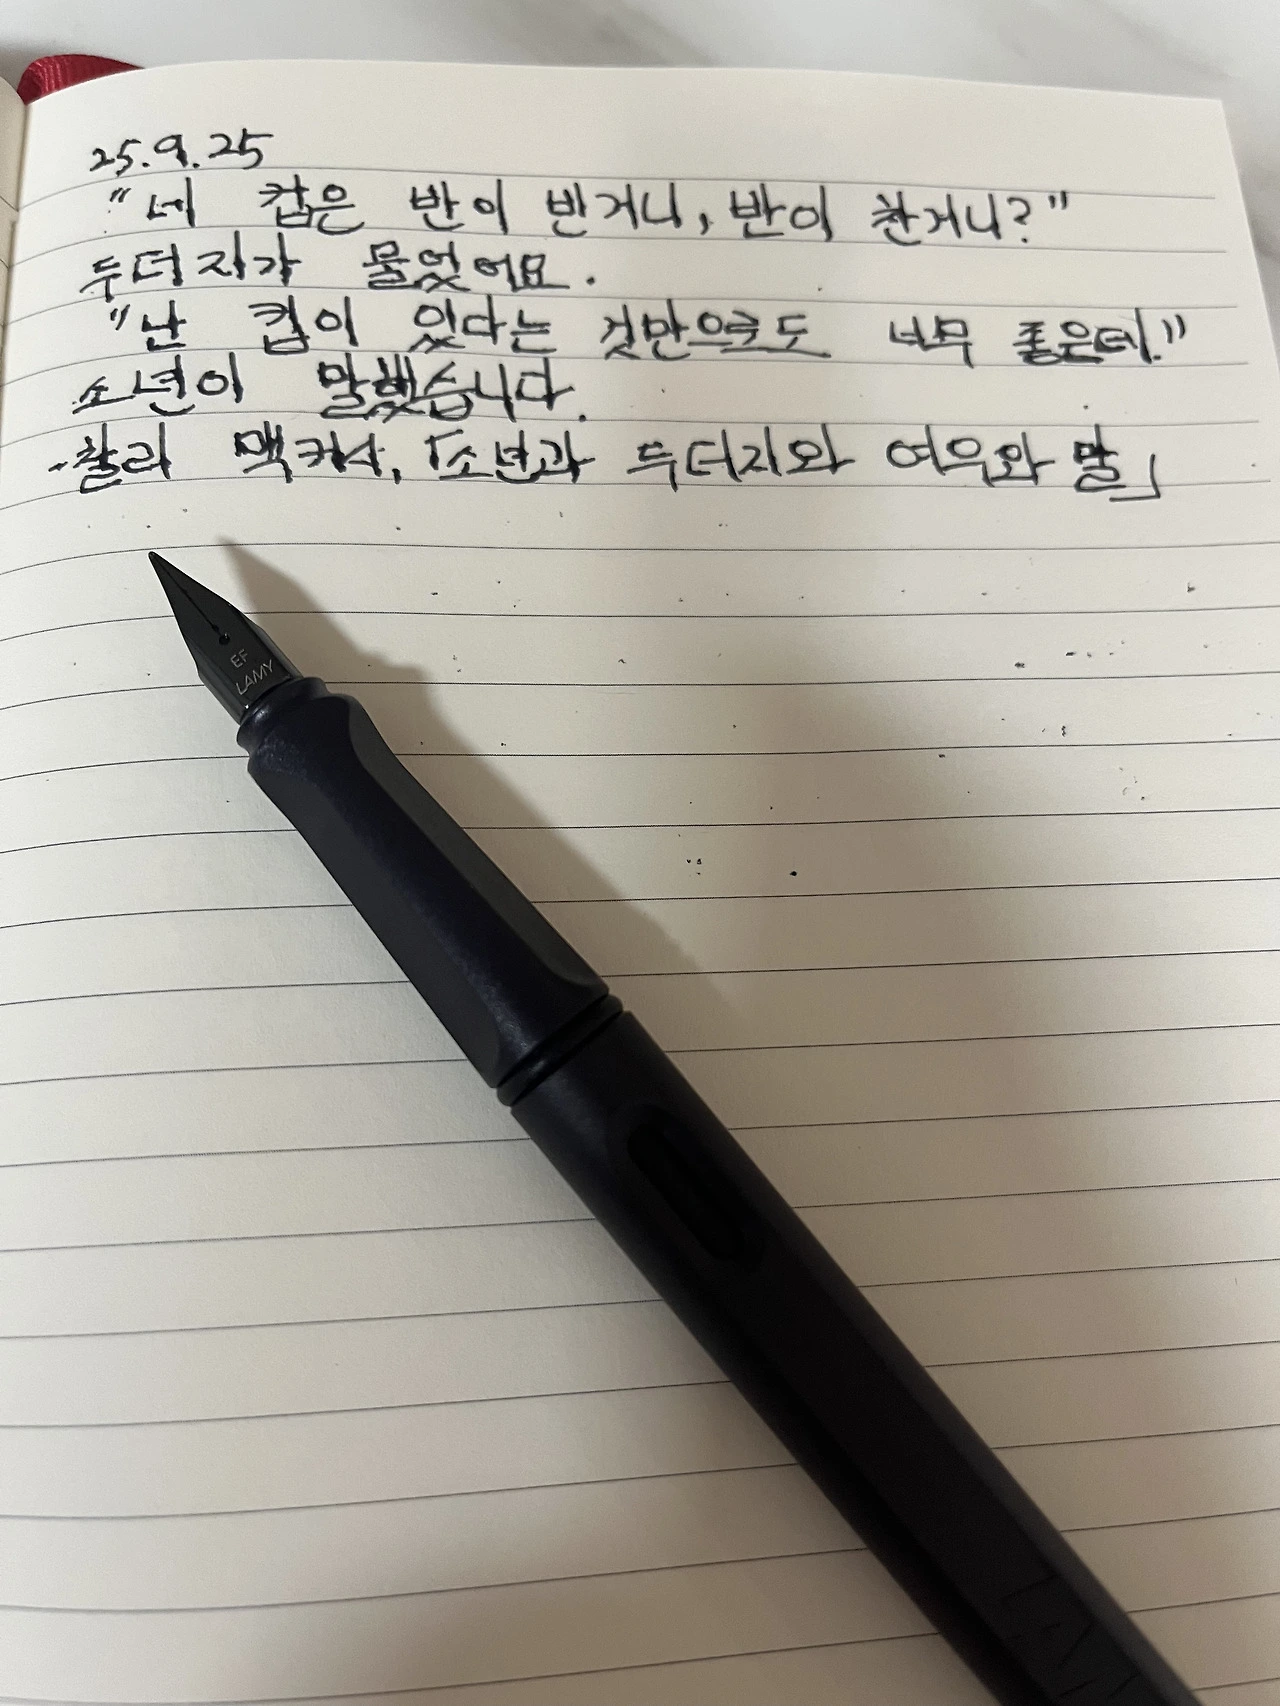 25.9.25
"네 컵은 반이 빈거니, 반이 찬거니?"
두더지가 물었어요.
"난 컵이 있다는 것만으로도 너무 좋은데."
소년이 말했습니다.
-찰리 맥커시, 「소년과 두더지와 여우와 말」
EF
LAMY
LAMY